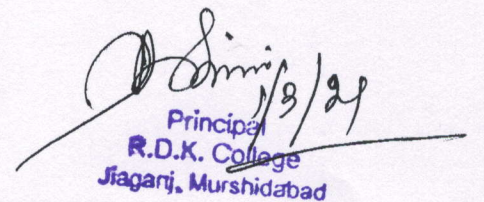 1/3/21
Principal
R.D.K. College
Jiaganj, Murshidabad